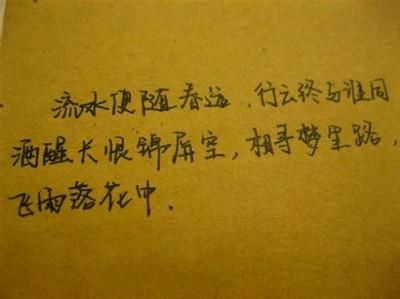 流水便随春远,行云终与谁同
酒醒长恨锦屏空,相寻梦里路,
飞雨落花中.